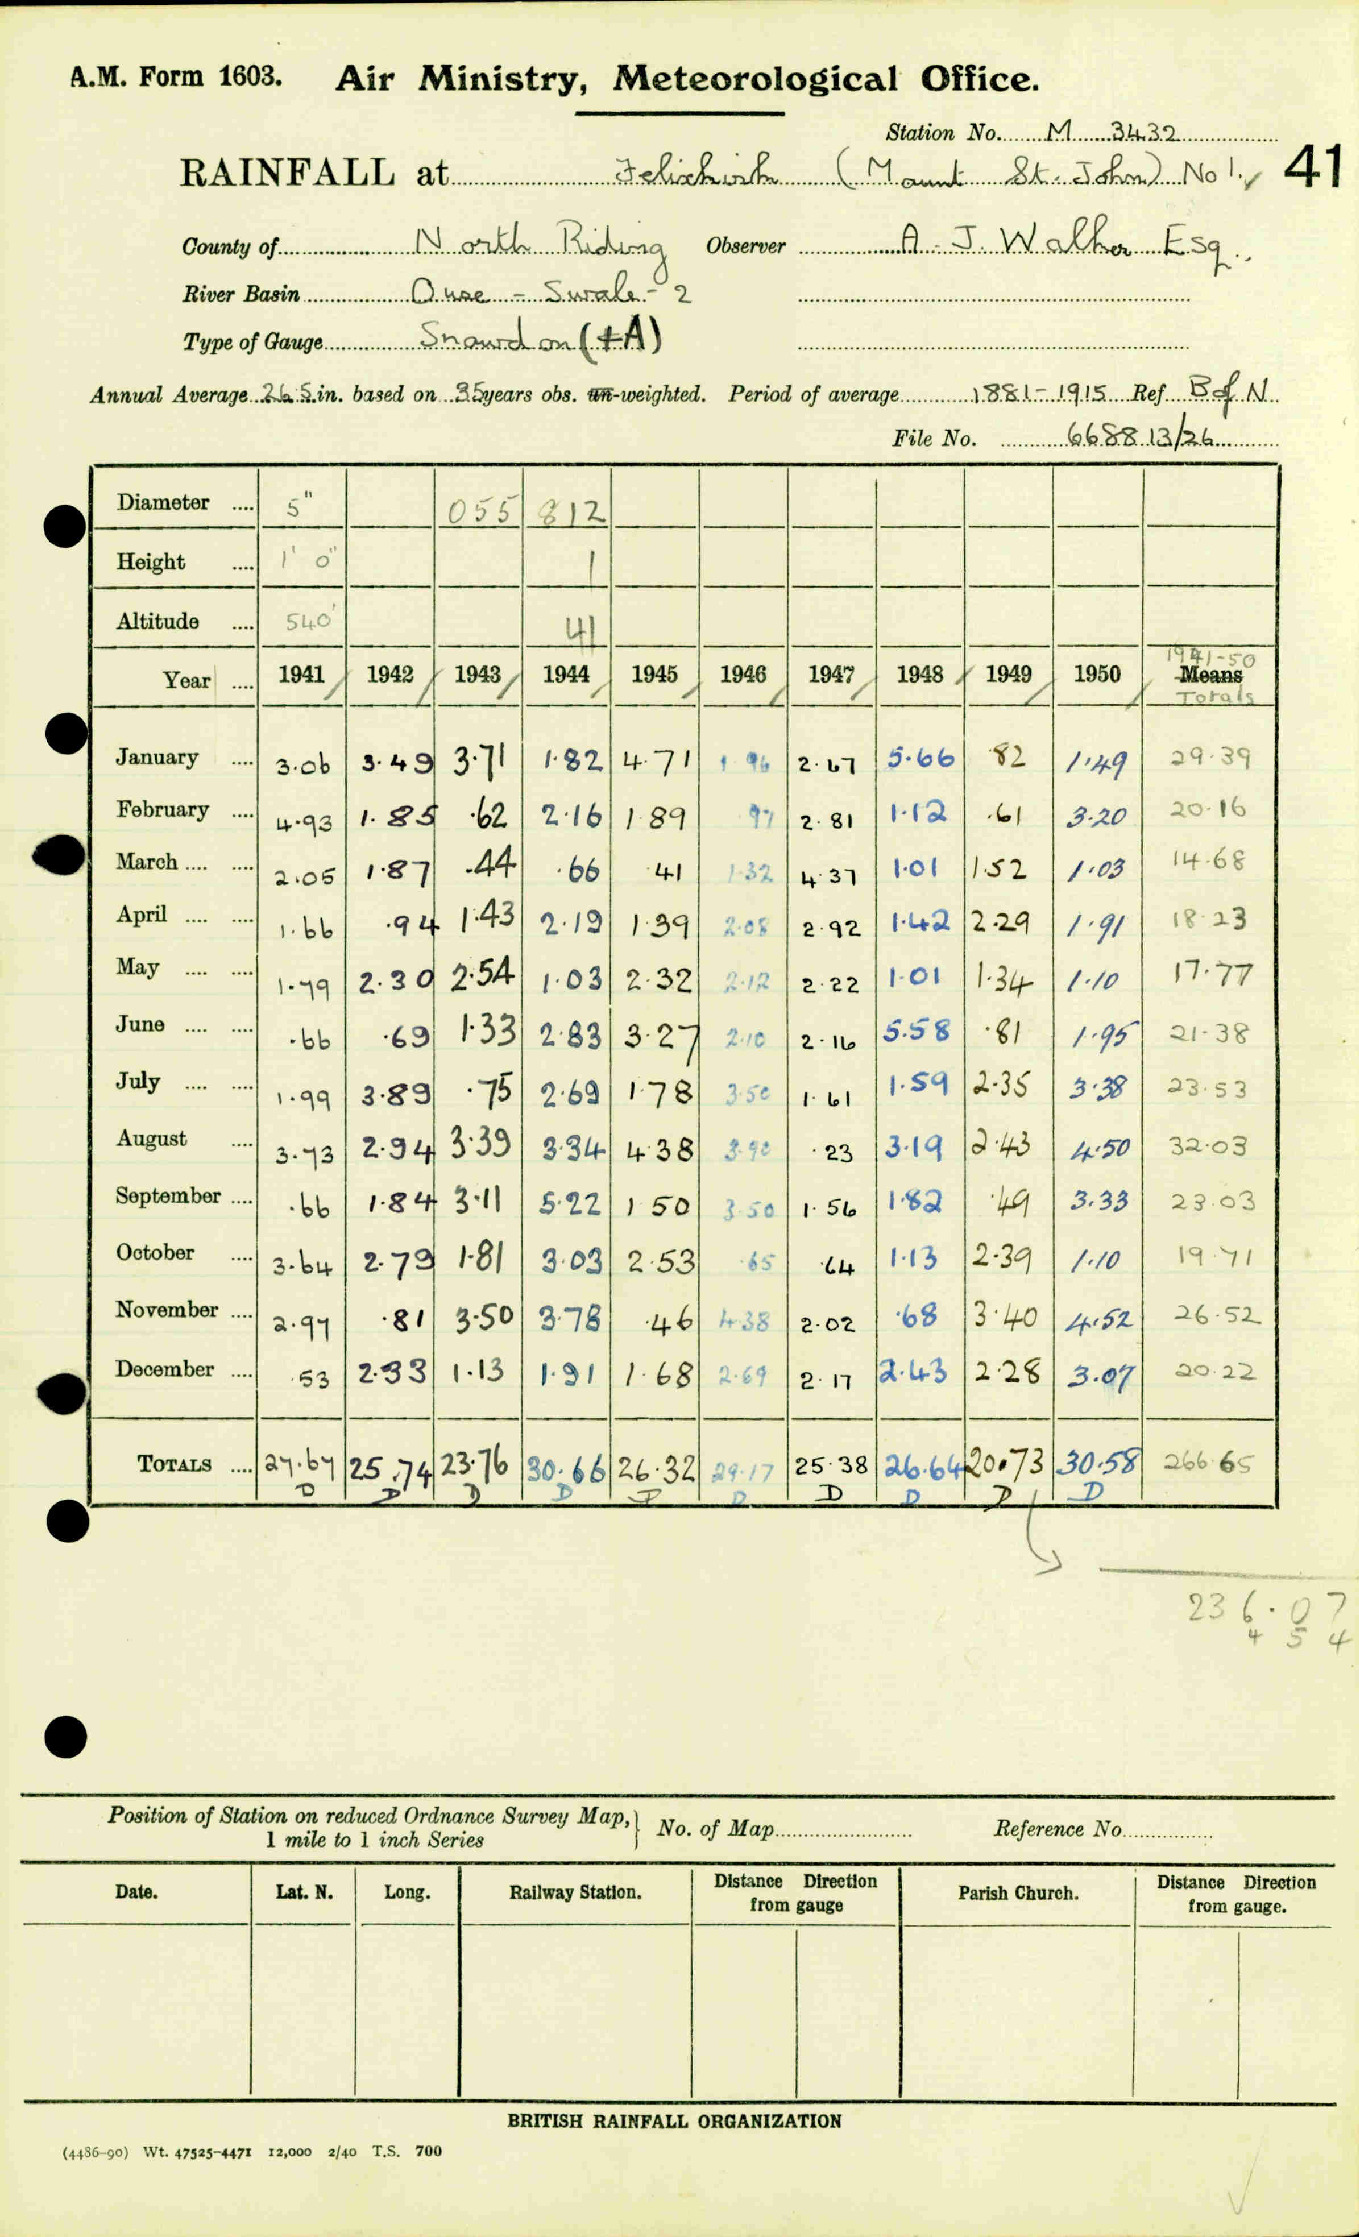 A.M. Form 1603. Air Ministry, Meteorological Office.
Station No. M 3432
RAINFALL at Felixkirk (Mount St. John) No 1. 41
County of North Riding Observer A. J. Walker Esq.
River Basin Ouse - Swale - 2
Type of Gauge Snowdon (+A)
Annual Average 26.5 in. based on 35 years obs. un-weighted. Period of average 1881-1915 Ref. B of N
File No. 668813/26
Diameter .... 5" 055 812
Height .... 1' 0" 1
Altitude .... 540' 41
Year .... 1941 1942 1943 1944 1945 1946 1947 1948 1949 1950 1941-50 Means Totals
January .... 3.06 3.49 3.71 1.82 4.71 1.96 2.67 5.66 .82 1.49 29.39
February .... 4.93 1.85 .62 2.16 1.89 .97 2.81 1.12 .61 3.20 20.16
March .... .... 2.05 1.87 .44 .66 .41 1.32 4.37 1.01 1.52 1.03 14.68
April .... .... 1.66 .94 1.43 2.19 1.39 2.08 2.92 1.42 2.29 1.91 18.23
May .... .... 1.79 2.30 2.54 1.03 2.32 2.12 2.22 1.01 1.34 1.10 17.77
June .... .... .66 .69 1.33 2.83 3.27 2.10 2.16 5.58 .81 1.95 21.38
July .... .... 1.99 3.89 .75 2.69 1.78 3.50 1.61 1.59 2.35 3.38 23.53
August .... 3.73 2.94 3.39 3.34 4.38 3.90 .23 3.19 2.43 4.50 32.03
September .... .66 1.84 3.11 5.22 1.50 3.50 1.56 1.82 .49 3.33 23.03
October .... 3.64 2.79 1.81 3.03 2.53 .65 .64 1.13 2.39 1.10 19.71
November .... 2.97 .81 3.50 3.78 .46 4.38 2.02 .68 3.40 4.52 26.52
December .... .53 2.33 1.13 1.91 1.68 2.69 2.17 2.43 2.28 3.07 20.22
TOTALS .... 27.67 25.74 23.76 30.66 26.32 29.17 25.38 26.64 20.73 30.58 266.65
D D D D D D D D D D
236.07
4 5 4
Position of Station on reduced Ordnance Survey Map, 1 mile to 1 inch Series } No. of Map Reference No.
Date. Lat. N. Long. Railway Station. Distance Direction from gauge Parish Church. Distance Direction from gauge.
BRITISH RAINFALL ORGANIZATION
(4486-90) Wt. 47525-4471 12,000 2/40 T.S. 700